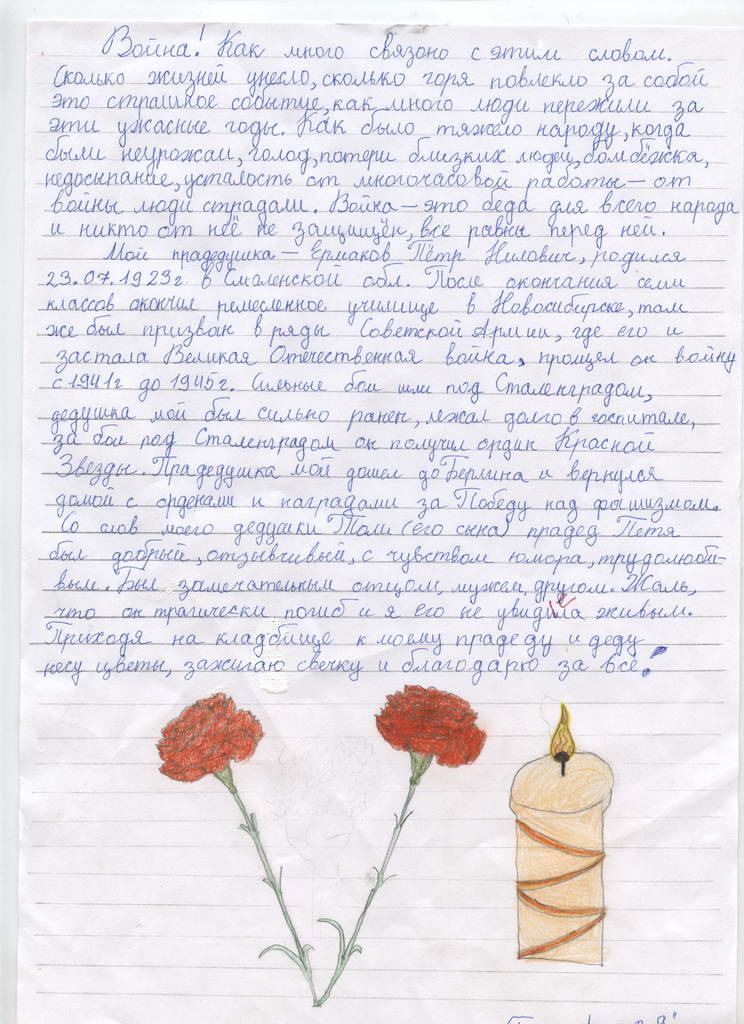 Война! Как много связоно с этим словом.
Сколько жизней унесло, сколько горя повлекло за собой
это страшное событие, как много люди пережили за
эти ужасные годы. Как было тяжело народу, когда
были неурожаи, голод, потери близких людей, бомбёжка,
недосыпание, усталость от многочасовой работы – от
войны люди страдали. Война – это беда для всего народа
и никто от неё не защищён, все равны перед ней.
Мой прадедушка – Ермаков Пётр Нилович, родился
23.07.1923г. в Смоленской обл. После окончания семи
классов окончил ремесленное училище в Новосибирске, там
же был призван в ряды Советской Армии, где его и
застала Великая Отечественная война, прошел он войну
с 1941г до 1945г. Сильные бои шли под Сталенградом,
дедушка мой был сильно ранен, лежал долго в госпитале,
за бои под Сталенградом он получил ордин Красной
Звезды. Прадедушка мой дошел до Берлина и вернулся
домой с орденами и наградами за Победу над фышизмом.
Со слов моего дедушки Толи (его сына) прадед Петя
был добрый, отзывчивый, с чувством юмора, трудолюби-
вым. Был замечательным отцом, мужем, другом. Жаль,
что он трагически погиб и я его не увидела живым.
Приходя на кладбище к моему прадеду и деду
несу цветы, зажигаю свечку и благодарю за все!